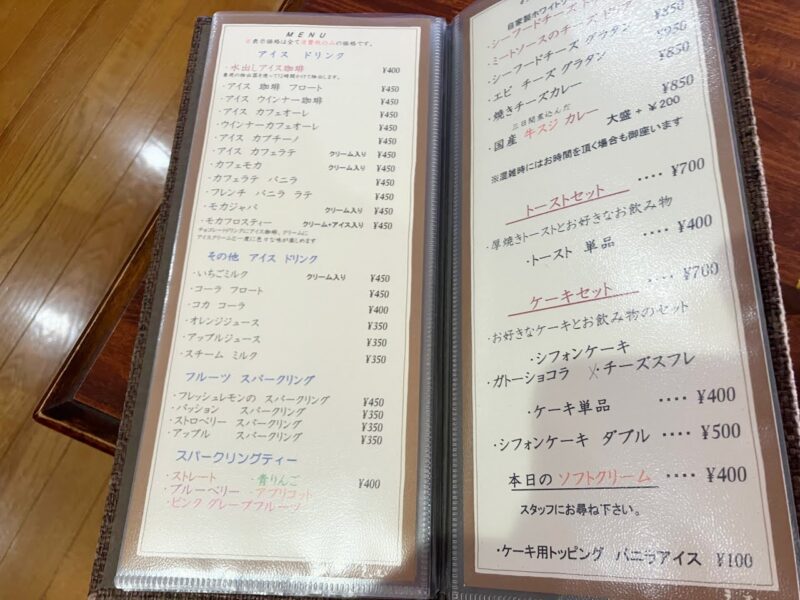 MENU
※表示価格は全て消費税込みの価格です。
アイス ドリンク
・水出しアイス珈琲 ¥400
・アイス 珈琲 フロート ¥450
・アイス ウインナー珈琲 ¥450
・アイス カフェオーレ ¥450
・ウインナーカフェオーレ ¥450
・アイス カプチーノ ¥450
・アイス カフェラテ クリーム入り ¥450
・カフェモカ クリーム入り ¥450
・カフェラテ バニラ ¥450
・フレンチ バニラ ラテ ¥450
・モカジャバ クリーム入り ¥450
・モカフロスティー クリーム+アイス入り ¥450
チョコレートドリンクにアイス珈琲、クリームに
アイスクリームと一度に色々な味が楽しめます
その他 アイス ドリンク
・いちごミルク クリーム入り ¥450
・コーラ フロート ¥450
・コカ コーラ ¥400
・オレンジジュース ¥350
・アップルジュース ¥350
・スチーム ミルク ¥350
フルーツ スパークリング
・フレッシュレモンの スパークリング ¥450
・パッション スパークリング ¥350
・ストロベリー スパークリング ¥350
・アップル スパークリング ¥350
スパークリングティー
・ストレート ・青りんご ¥400
・ブルーベリー ・アプリコット
・ピンク グレープフルーツ
自家製ホワイトソ
・シーフードチーズ ド ¥850
・ミートソースのチーズ ドリア
・シーフードチーズ グラタン ¥950
・エビ チーズ グラタン ¥850
・焼きチーズカレー
三日間煮込んだ ¥850
・国産 牛スジ カレー 大盛 + ¥200
※混雑時にはお時間を頂く場合も御座います
トーストセット ‥‥ ¥700
・厚焼きトーストとお好きなお飲み物
・トースト 単品 ‥‥ ¥400
ケーキセット ‥‥ ¥700
・お好きなケーキとお飲み物のセット
・シフォンケーキ
・ガトーショコラ ・チーズスフレ
・ケーキ単品 ‥‥ ¥400
・シフォンケーキ ダブル ‥‥ ¥500
本日の ソフトクリーム ‥‥ ¥400
スタッフにお尋ね下さい。
・ケーキ用トッピング バニラアイス ¥100